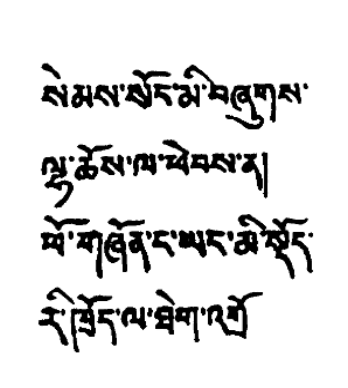 སེམས་སོང་མི་བཞུགས་
ལྷ་ཆོས་ལ་ཕེབས་ན།
ཕོ་གཞོན་ང་ཡང་མི་སྡོད་
རི་ཁྲོད་ལ་ཐེག་འགྲོ